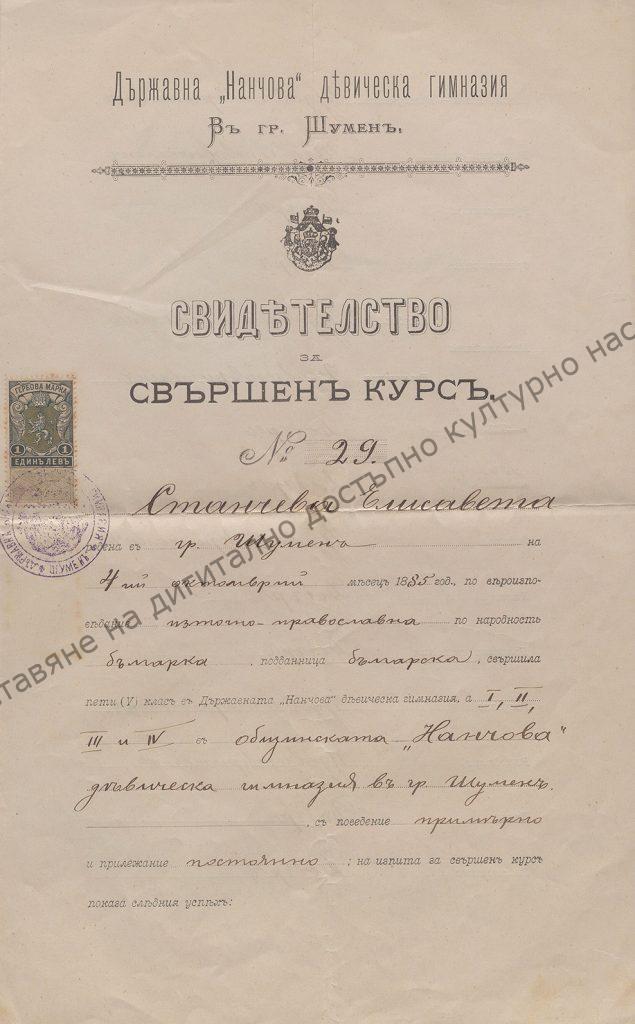 Държавна „Нанчова“ дѣвическа гимназия
Въ гр. Шуменъ.
СВИДѢТЕЛСТВО
за
СВЪРШЕНЪ КУРСЪ.
№ 29.
ГЕРБОВА МАРКА
1 1
ЕДИНЪ ЛЕВЪ
Станчева Елисавета
родена въ гр. Шуменъ на
4 ий октомврий мѣсецъ 1885 год., по вѣроизпо-
вѣдание източно-православна по народность
бѫлгарка, подданница бѫлгарска, свършила
пети (V) класъ въ Държавната „Нанчова“ дѣвическа гимназия, а I, II,
III и IV въ общинската „Нанчова“
дѣвическа гимназия въ гр. Шуменъ.
, съ поведение примѣрно
и прилежание постоянно; на изпита за свършенъ курсъ
показа слѣдния успѣхъ:
ставяне на дигитално достъпно културно нас